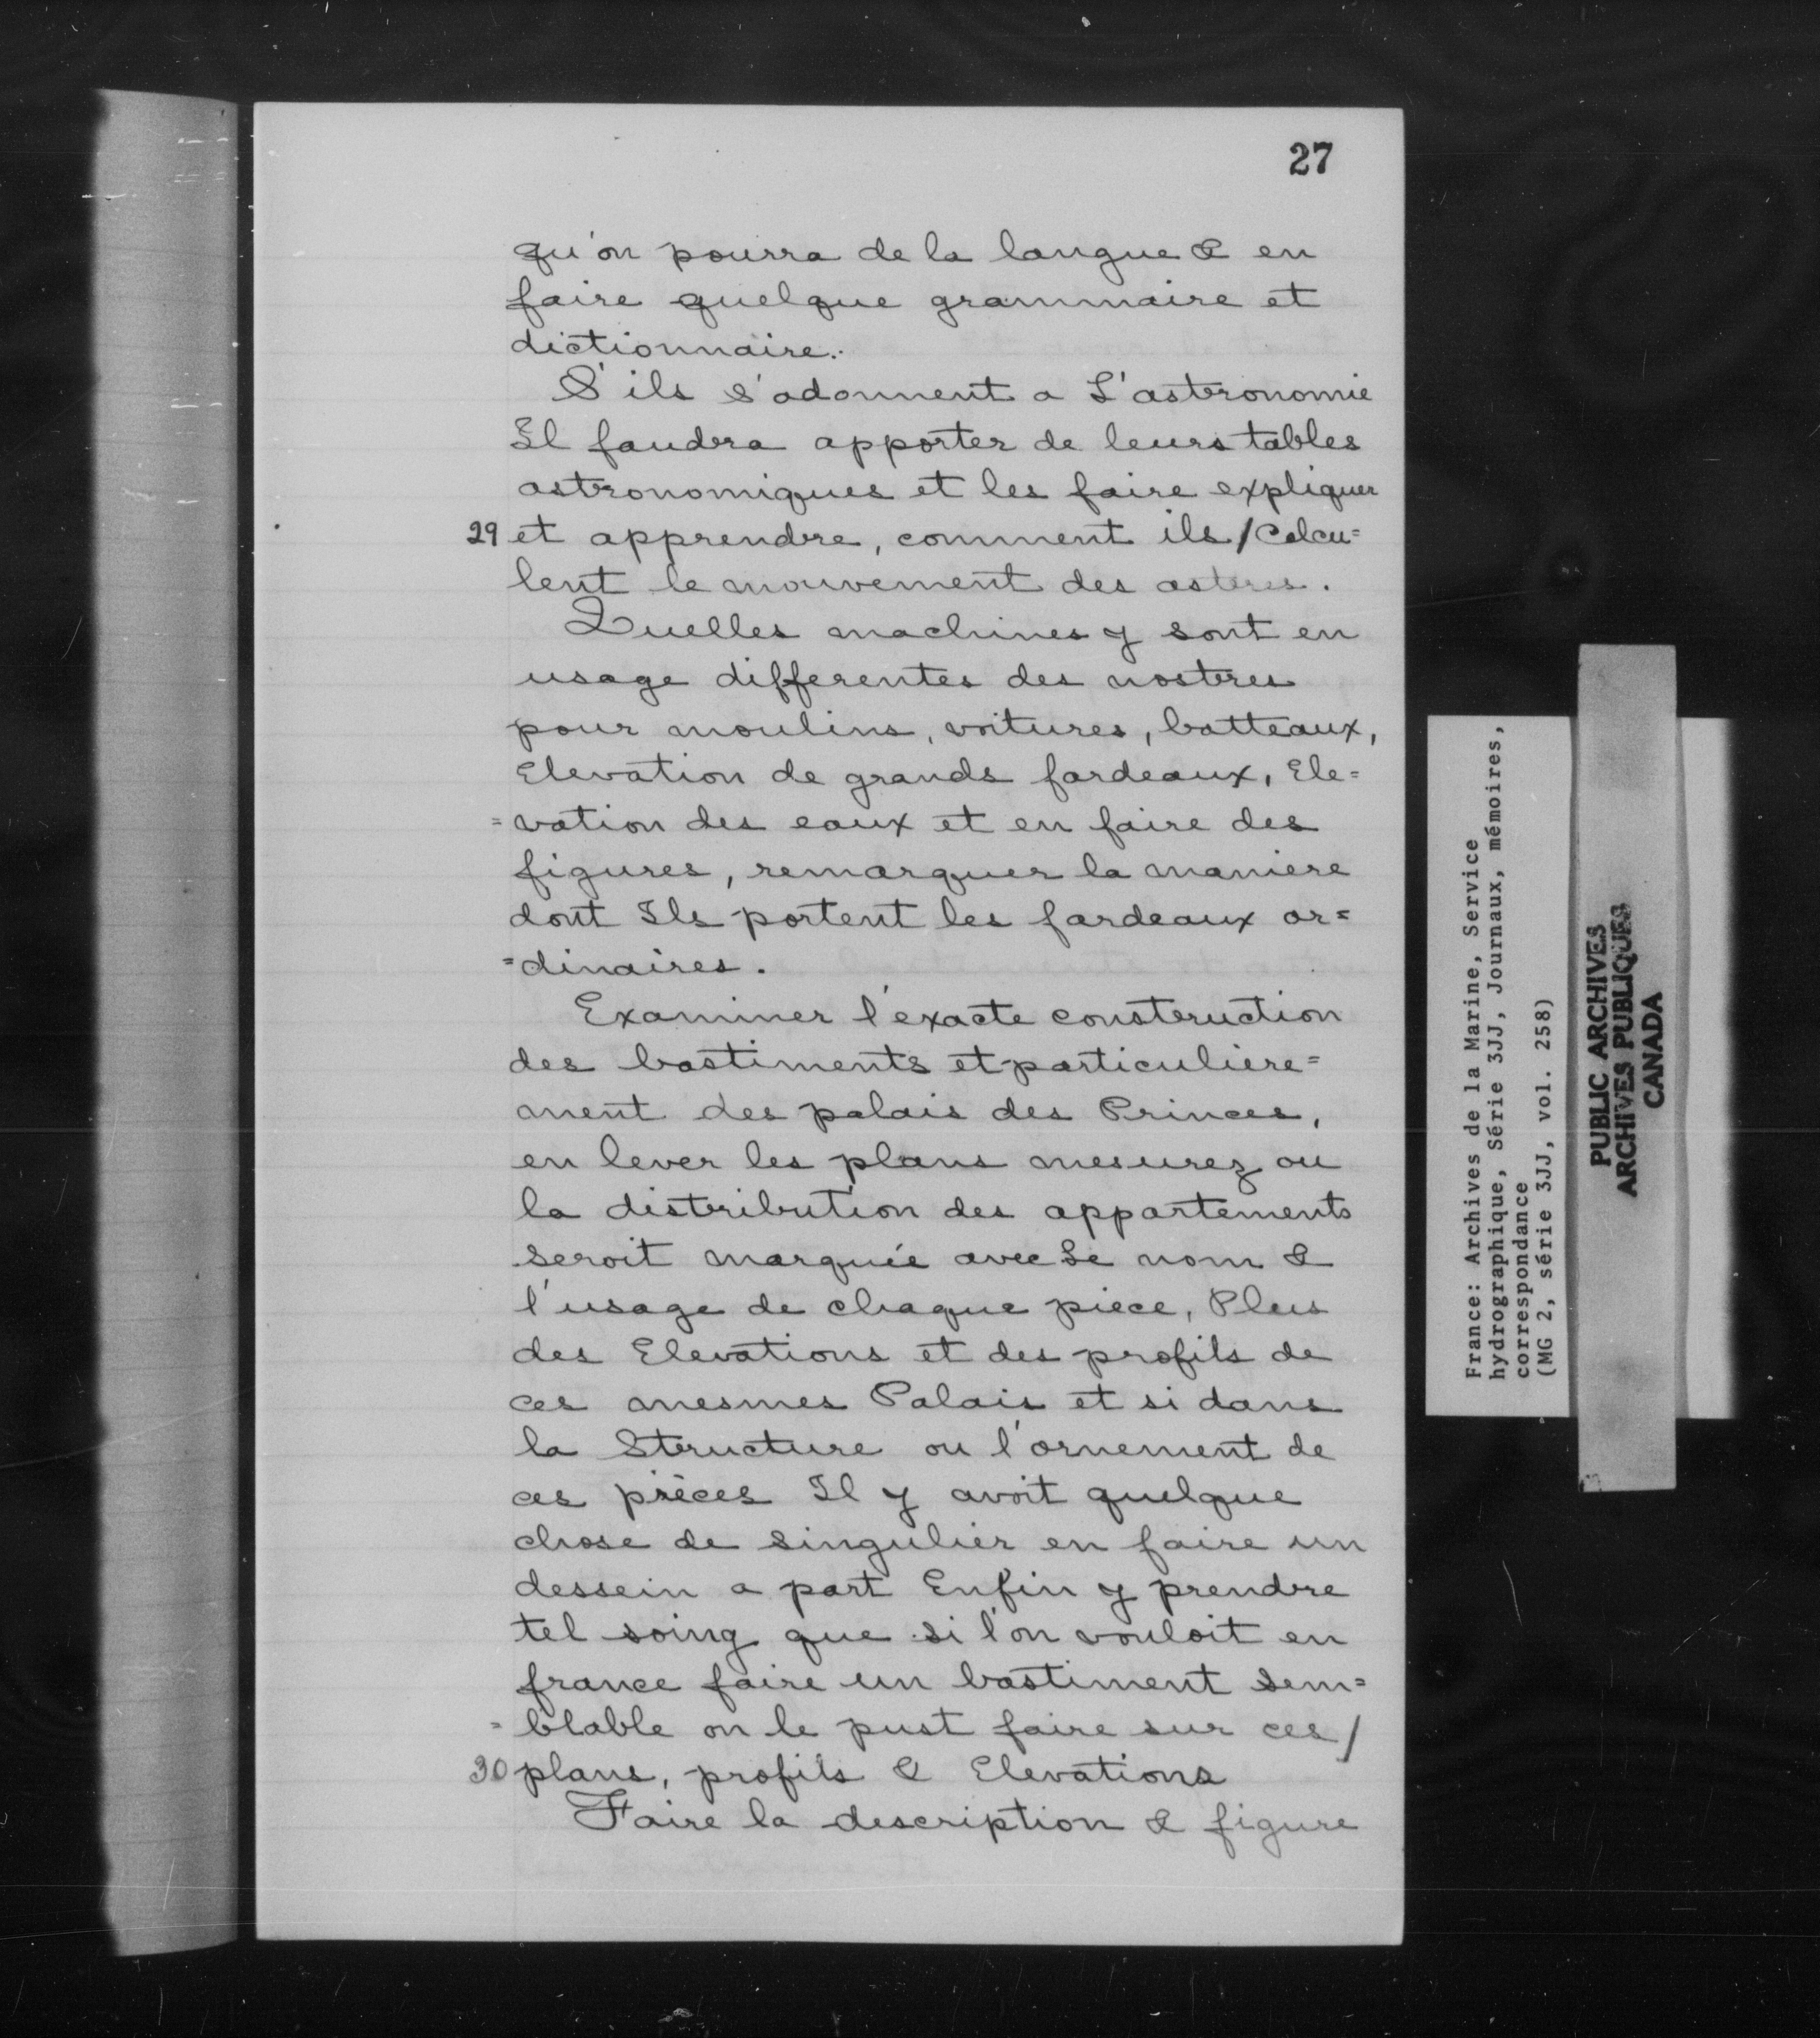 27
qu'on pourra de la langue & en
faire quelque grammaire et
dictionnaire.
S'ils s'adonnent a L'astronomie
Il faudra apporter de leurs tables
astronomiques et les faire expliquer
29 et apprendre, comment ils / Calcu=
lent le mouvement des astres.
Quelles machines y sont en
usage differentes des nostres
pour moulins, voitures, batteaux,
Elevation de grands fardeaux, Ele=
=vation des eaux et en faire des
figures, remarquer la maniere
dont Ils portent les fardeaux or=
=dinaires.
Examiner l'exacte construction
des bastiments et particuliere=
ment des palais des Princes,
en lever les plans mesurez ou
la distribution des appartements
seroit marquée avec Le nom &
l'usage de chaque piece, Plus
des Elevations et des profils de
ces mesmes Palais et si dans
la Structure ou l'ornement de
ces pièces Il y avoit quelque
chose de singulier en faire un
dessein a part Enfin y prendre
tel soing que si l'on vouloit en
france faire un bastiment sem=
=blable on le pust faire sur ces /
30 plans, profils & Elevations
Faire la description & figure
France: Archives de la Marine, Service
hydrographique, Série 3JJ, Journaux, mémoires,
correspondance
(MG 2, série 3JJ, vol. 258)
PUBLIC ARCHIVES
ARCHIVES PUBLIQUES
CANADA